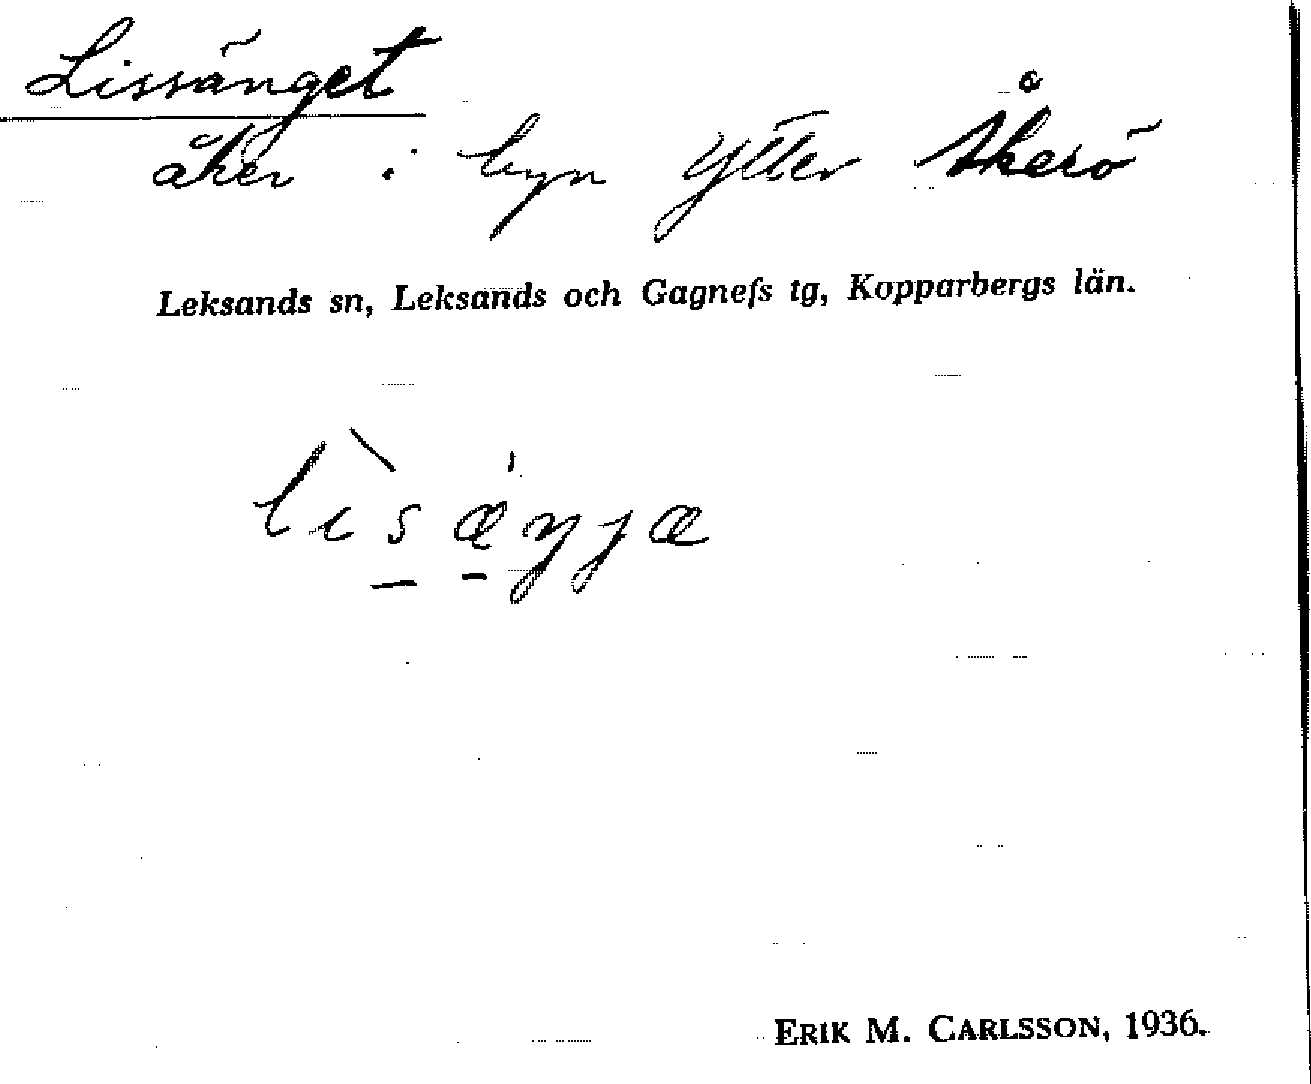 Lissänget
åker i byn Ytter Åkerö
Leksands sn, Leksands och Gagnefs tg, Kopparbergs län.
ERIK M. CARLSSON, 1936.